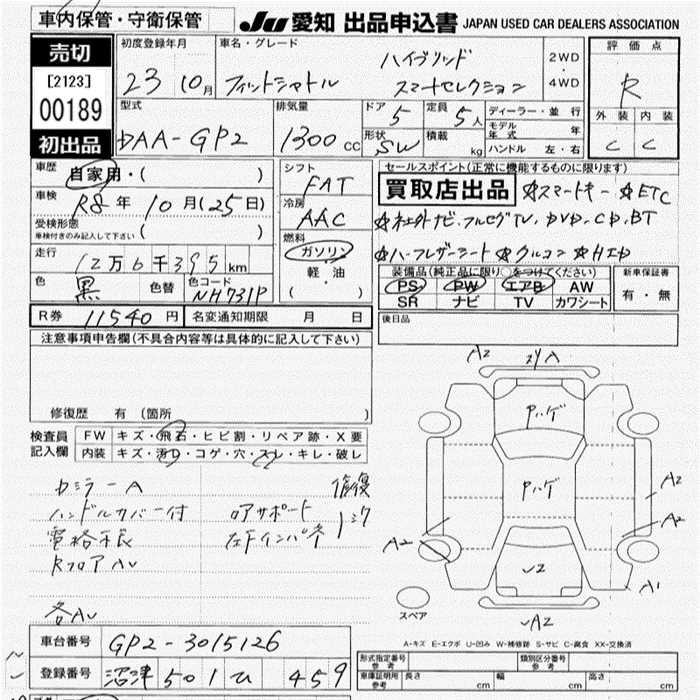 車内保管・守衛保管
Ju 愛知 出品申込書 JAPAN USED CAR DEALERS ASSOCIATION
売切
[2123]
00189
初出品
初度登録年月
23 10月
車名・グレード
フィットシャトル
ハイブリッド
スマートセレクション
2WD
・
4WD
評価点
R
外装 内装
C C
型式
DAA-GP2
排気量
1300 cc
ドア 5
定員 5人
形状 SW
積載 kg
ディーラー・並行
モデル年式 年
ハンドル 左・右
車歴
自家用・( )
車検
R8年10月(25日)
受検形態
車検付きのみ記入して下さい ( )
走行
12万6千395km
色 黒 色替 色コード NH731P
シフト
FAT
冷房
AAC
燃料
ガソリン
軽・油
( )
セールスポイント(正常に機能するものに限ります)
買取店出品 ☆スマートキー ☆ETC
☆社外ナビ.フルセグTV,DVD,CD,BT
☆ハーフレザーシート ☆クルコン ☆HID
装備品(純正品に限り○をつけてください)
PS PW エアB AW
SR ナビ TV カワシート
新車保証書
有・無
R券 11540円 名変通知期限 月 日
後日品
注意事項申告欄(不具合内容等は具体的に記入して下さい)
修復歴 有 (箇所 )
検査員
記入欄
FW キズ・飛石・ヒビ割・リペア跡・X要
内装 キズ・汚れ・コゲ・穴・スレ・キレ・破レ
ハンドルカバー付
RフロアAU
各AU
A2
A
Pハゲ
Pハゲ
A2
A2
A2
A1
A2
スペア
A-キズ E-エクボ U-凹み W-補修跡 S-サビ C-腐食 XX-交換済
車台番号 GP2-3015126
登録番号 沼津 501 ひ 459
形式指定番号 参考
類別区分番号 参考
車庫証明用 参考 長さ cm 幅 cm 高さ cm